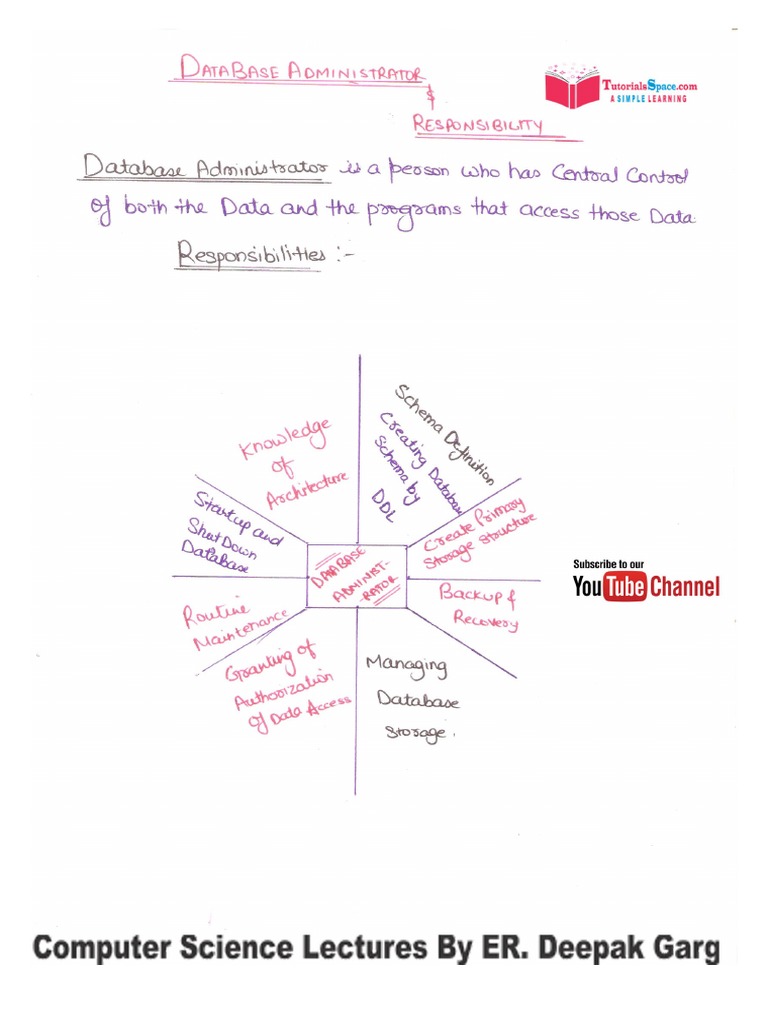 DATABASE ADMINISTRATOR
&
RESPONSIBILITY
TutorialsSpace.com
A SIMPLE LEARNING
Database Administrator is a person who has Central Control
of both the Data and the programs that access those Data
Responsibilities :-
Schema Definition
Creating Database
Schema by
DDL
Create Primary
Storage Structure
Backup &
Recovery
Managing
Database
Storage.
Granting of
Authorization
of Data Access
Routine
Maintenance
Startup and
ShutDown
Database
Knowledge
of
Architecture
DATABASE
ADMINIST-
RATOR
Subscribe to our
YouTube Channel
Computer Science Lectures By ER. Deepak Garg